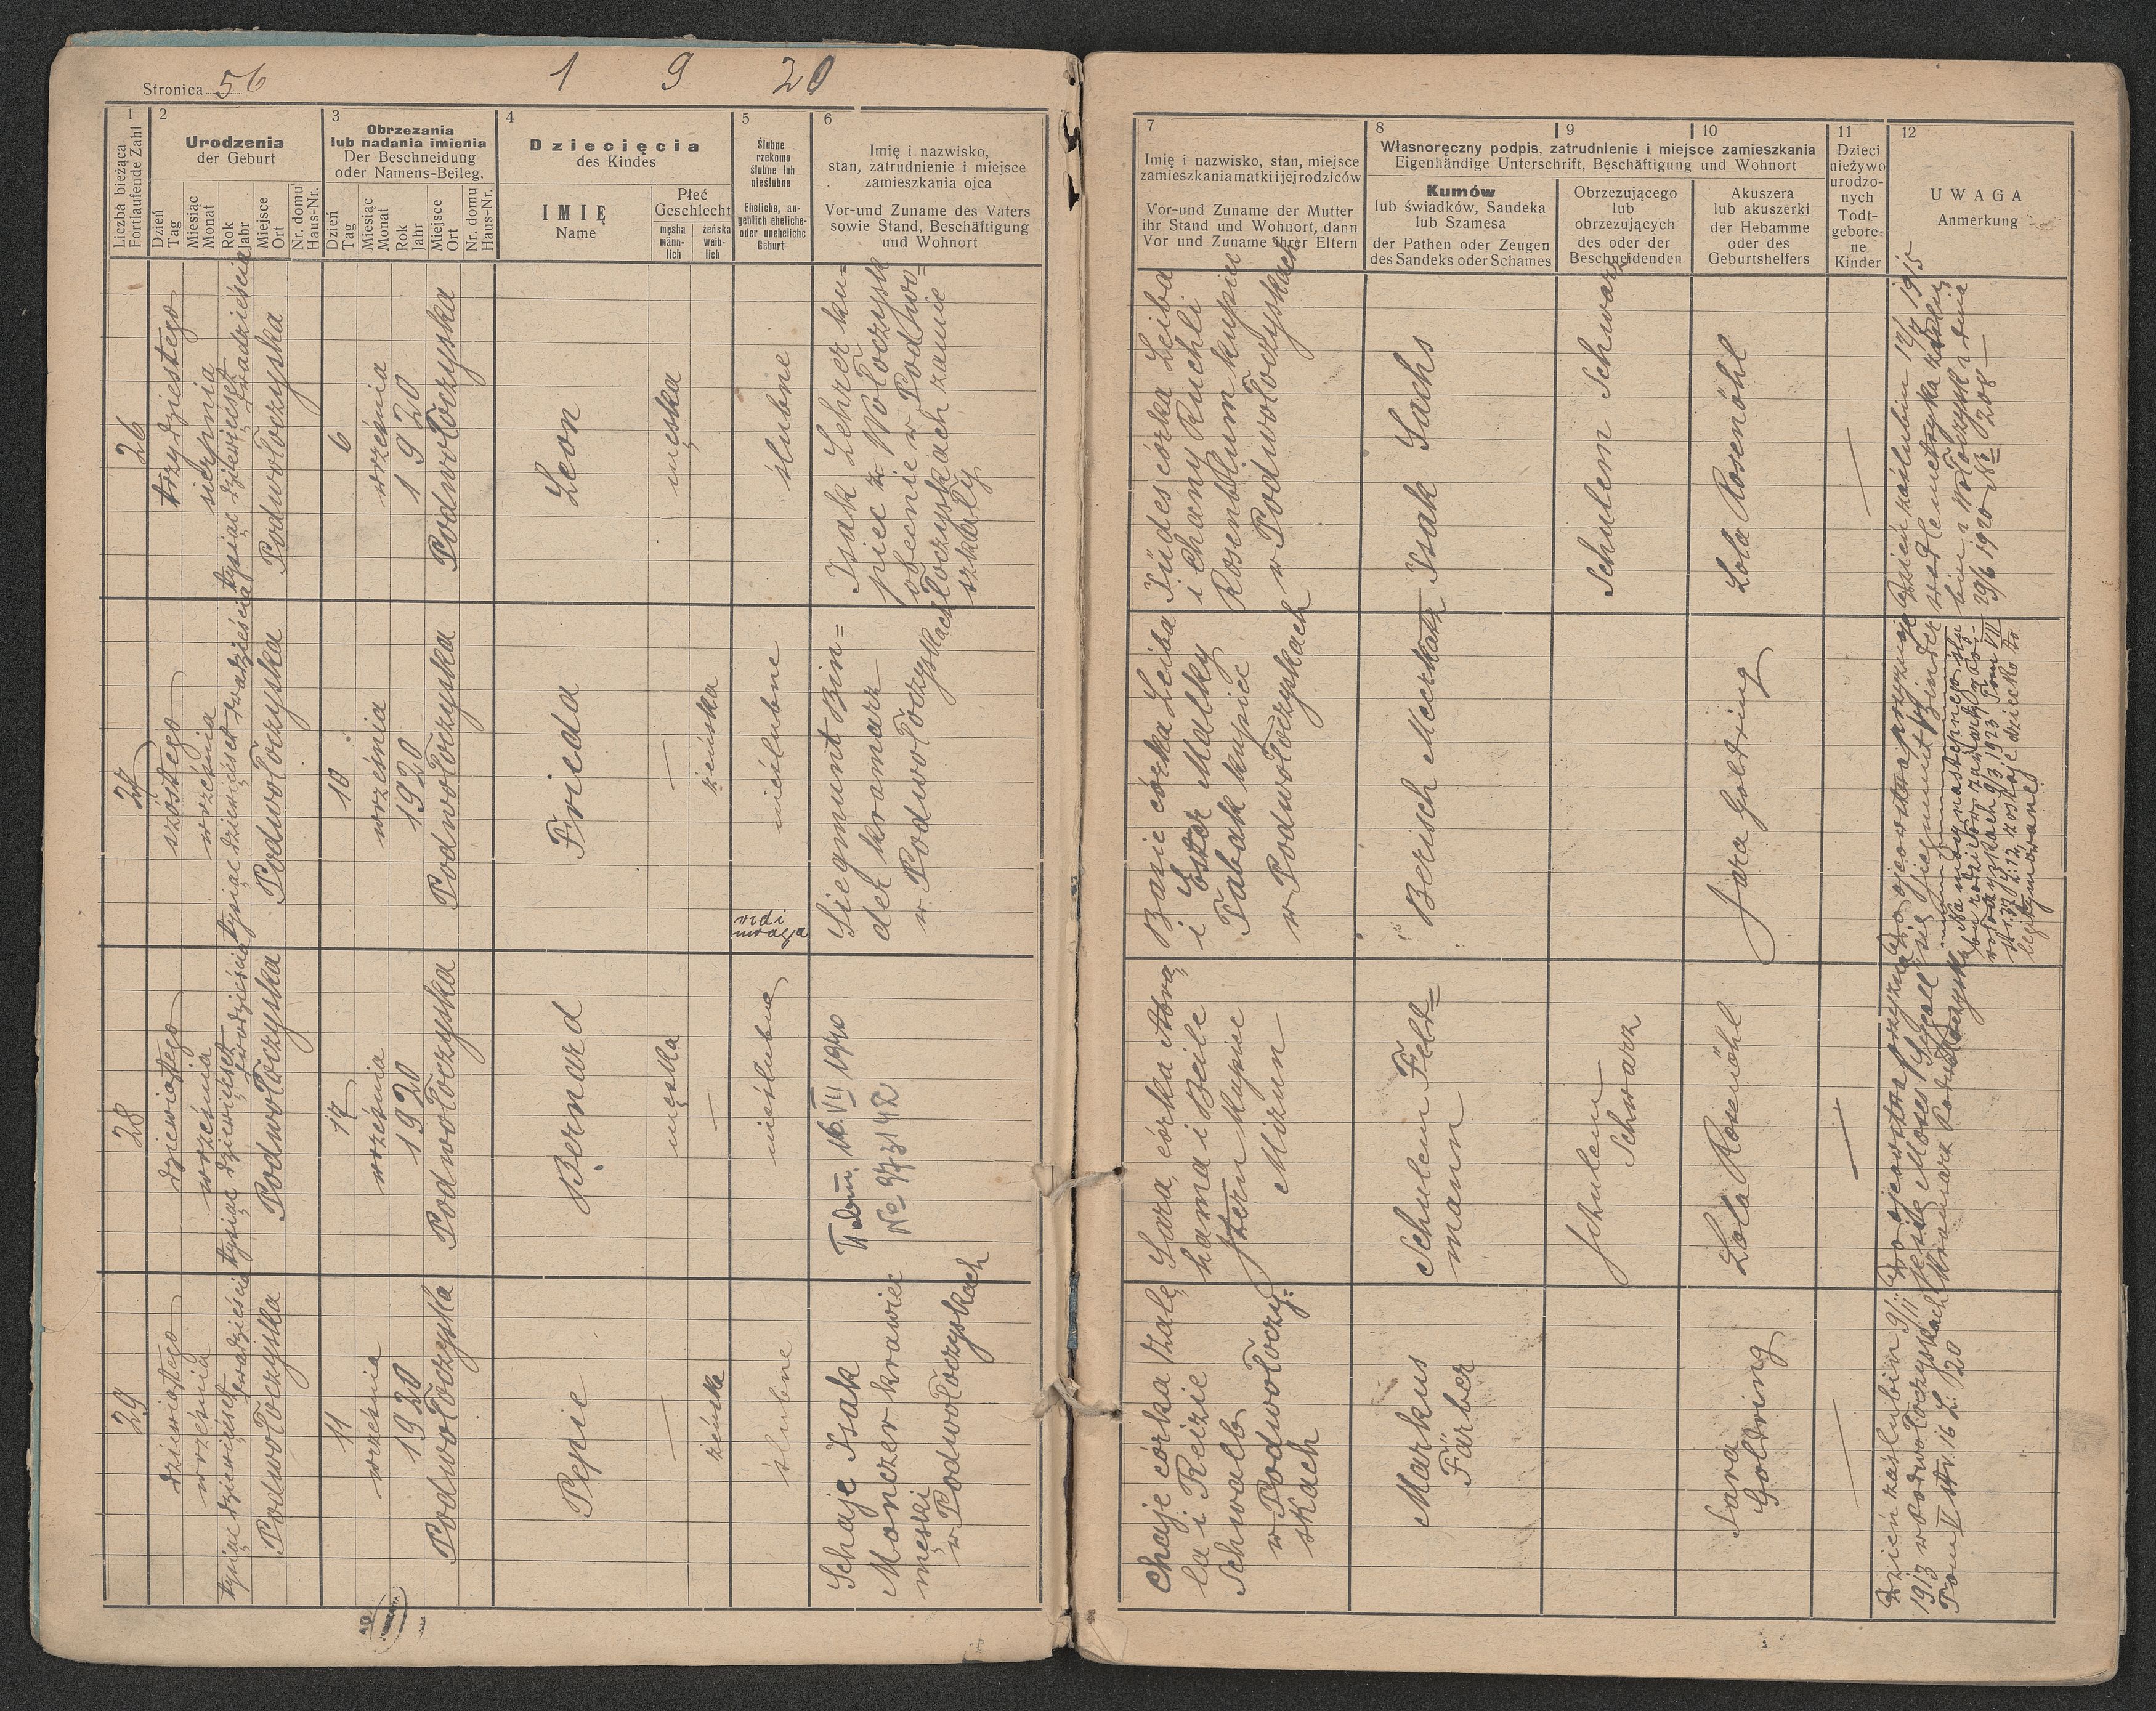 Stronica 56
1 9 20
1
Liczba bieżąca
Fortlaufende Zahl
2
Urodzenia
der Geburt
Dzień
Tag
Miesiąc
Monat
Rok
Jahr
Miejsce
Ort
Nr. domu
Haus-Nr.
3
Obrzezania
lub nadania imienia
Der Beschneidung
oder Namens-Beileg.
Dzień
Tag
Miesiąc
Monat
Rok
Jahr
Miejsce
Ort
Nr. domu
Haus-Nr.
4
Dziecięcia
des Kindes
IMIĘ
Name
Płeć
Geschlecht
męska
männ-
lich
żeńska
weib-
lich
5
Ślubne
rzekomo
ślubne lub
nieślubne
Eheliche, an-
geblich eheliche-
oder uneheliche
Geburt
6
Imię i nazwisko,
stan, zatrudnienie i miejsce
zamieszkania ojca
Vor-und Zuname des Vaters
sowie Stand, Beschäftigung
und Wohnort
7
Imię i nazwisko, stan, miejsce
zamieszkania matki i jej rodziców
Vor-und Zuname der Mutter
ihr Stand und Wohnort, dann
Vor und Zuname ihrer Eltern
8
9
10
Własnoręczny podpis, zatrudnienie i miejsce zamieszkania
Eigenhändige Unterschrift, Beschäftigung und Wohnort
Kumów
lub świadków, Sandeka
lub Szamesa
der Pathen oder Zeugen
des Sandeks oder Schames
Obrzezującego
lub
obrzezujących
des oder der
Beschneidenden
Akuszera
lub akuszerki
der Hebamme
oder des
Geburtshelfers
11
Dzieci
nieżywo
urodzo-
nych
Todt-
gebore-
ne
Kinder
12
UWAGA
Anmerkung
26
trzydziestego
sierpnia
tysiąc dziewięćset
dwadzieścia
Podwołoczyska
6
września
1920
Podwołoczyska
Leon
męska
ślubne
Isak Lehrer ku=
piec z Wołoczysk
obecnie w Podwo=
łoczyskach zamie
szkały
Jüdes córka Leiba
i Chany Ruchli
Rosenblum kupiec
w Podwołoczyskach
Isak Sachs
Schulem Schwarz
Lola Rosenöhl
—
Dzień zaślubin 12/7 1915
29/6 1920 № 208 —
27
szóstego
września
tysiąc dziewięćset dwadzieścia
Podwołoczyska
10
września
1920
Podwołoczyska
Frieda
—
żeńska
nieślubne
vidi
uwaga
Siegmunt Bin=
der kramarz
w Podwołoczyskach
Basie córka Leiba
i Ester Malky
Tabak kupiec
w Podwołoczyskach
Berisch Meerkatz
Sara Goldring
Do ojcowstwa przyznaje
się Siegmunt Binder
Na mocy następnego ślu
bu rodziców zawartego
9/3 1923 Tom III
str. 37 L: 12 zostaje dziecko to
legitymowanej
28
dziewiątego
września
tysiąc dziewięćset
dwadzieścia
Podwołoczyska
17
września
1920
Podwołoczyska
Bernard
męska
—
nieślubne
№ 973142
Sara, córka Abra
hama i Beile
Stern kupiec
Mizun
Schulem Feld=
mann
Schulem
Schwarz
Lola Rosenöhl
—
Do ojcowstwa przyznaje
się Moses Segall
kramarz Podwołoczyska
29
dziewiątego
września
tysiąc dziewięćset
dwadzieścia
Podwołoczyska
11
września
1920
Podwołoczyska
Pepie
—
żeńska
ślubne
Schaje Isak
Monczer krawiec
męski
w Podwołoczyskach
Chaje córka Zalę
la i Reizie
Schwalb
w Podwołoczy=
skach
Markus
Färber
Sara
Goldring
—
Dzień zaślubin 9/11
1913 w Podwołoczyskach
Tom II str. 16 L: 20